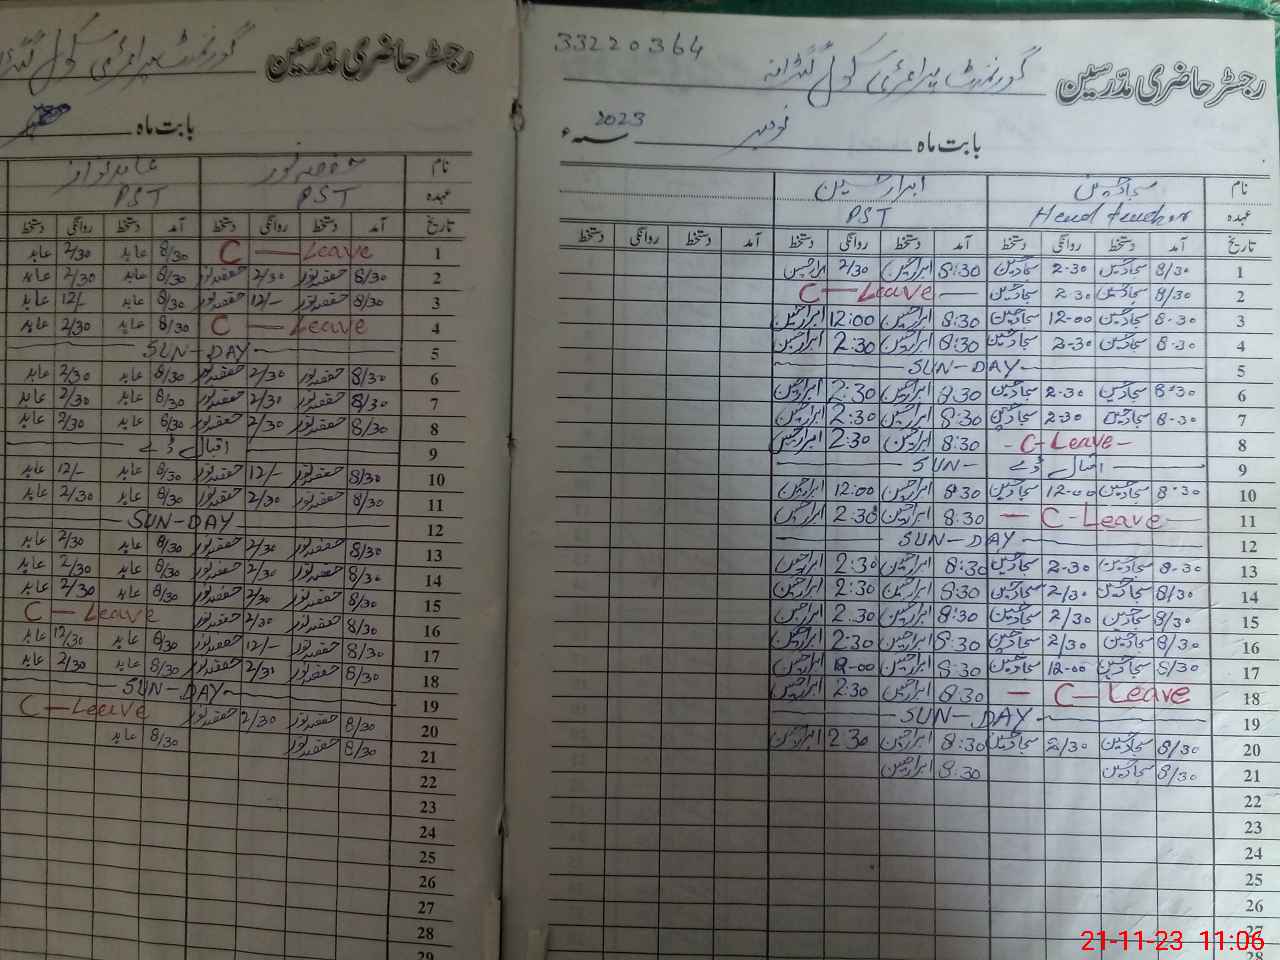 33220364
رجسٹر حاضری مدّرسین گورنمنٹ پرائمری سکول
بابت ماہ نومبر 2023 سنہء
نام سجاد حسین ابرار حسین
عہدہ Head teacher PST
تاریخ آمد دستخط روانگی دستخط آمد دستخط روانگی دستخط آمد دستخط روانگی دستخط
1 8/30 سجاد حسین 2-30 سجاد حسین 8:30 ابرار حسین 2/30 ابرار حسین
2 8/30 سجاد حسین 2-30 سجاد حسین C - Leave
3 8-30 سجاد حسین 12-00 سجاد حسین 8:30 ابرار حسین 12:00 ابرار حسین
4 8-30 سجاد حسین 2-30 سجاد حسین 8:30 ابرار حسین 2:30 ابرار حسین
5 SUN-DAY
6 8-30 سجاد حسین 2-30 سجاد حسین 8:30 ابرار حسین 2:30 ابرار حسین
7 8-30 سجاد حسین 2-30 سجاد حسین 8:30 ابرار حسین 2:30 ابرار حسین
8 - C-Leave - 8:30 ابرار حسین 2:30 ابرار حسین
9 اقبال ڈے SUN-
10 8-30 سجاد حسین 12-00 سجاد حسین 8:30 ابرار حسین 12:00 ابرار حسین
11 - C-Leave 8:30 ابرار حسین 2:30 ابرار حسین
12 SUN-DAY
13 8-30 سجاد حسین 2-30 سجاد حسین 8:30 ابرار حسین 2:30 ابرار حسین
14 8/30 سجاد حسین 2/30 سجاد حسین 8:30 ابرار حسین 2:30 ابرار حسین
15 8/30 سجاد حسین 2/30 سجاد حسین 8:30 ابرار حسین 2:30 ابرار حسین
16 8/30 سجاد حسین 2/30 سجاد حسین 8:30 ابرار حسین 2:30 ابرار حسین
17 8/30 سجاد حسین 12-00 سجاد حسین 8:30 ابرار حسین 12-00 ابرار حسین
18 - C-Leave 8:30 ابرار حسین 2:30 ابرار حسین
19 SUN-DAY
20 8/30 سجاد حسین 2/30 سجاد حسین 8:30 ابرار حسین 2:30 ابرار حسین
21 8/30 سجاد حسین 8:30 ابرار حسین
22
23
24
25
26
27
28
رجسٹر حاضری مدّرسین گورنمنٹ پرائمری سکول
بابت ماہ
نام عابد نواز
عہدہ PST PST
تاریخ آمد دستخط روانگی دستخط آمد دستخط روانگی دستخط
1 C - Leave 8/30 عابد 2/30 عابد
2 8/30 2/30 8/30 عابد 2/30 عابد
3 8/30 12/- 8/30 عابد 12/- عابد
4 C - Leave 8/30 عابد 2/30 عابد
5 SUN-DAY
6 8/30 2/30 8/30 عابد 2/30 عابد
7 8/30 2/30 8/30 عابد 2/30 عابد
8 8/30 2/30 8/30 عابد 2/30 عابد
9 اقبال ڈے
10 8/30 12/- 8/30 عابد 12/- عابد
11 8/30 2/30 8/30 عابد 2/30 عابد
12 SUN-DAY
13 8/30 2/30 8/30 عابد 2/30 عابد
14 8/30 2/30 8/30 عابد 2/30 عابد
15 8/30 2/30 8/30 عابد 2/30 عابد
16 8/30 2/30 C - Leave
17 8/30 12/- 8/30 عابد 12/30 عابد
18 8/30 2/31 8/30 عابد 2/30 عابد
19 SUN-DAY
20 8/30 2/30 C - Leave
21 8/30 8/30 عابد
22
23
24
25
26
27
28
29
21-11-23 11:06